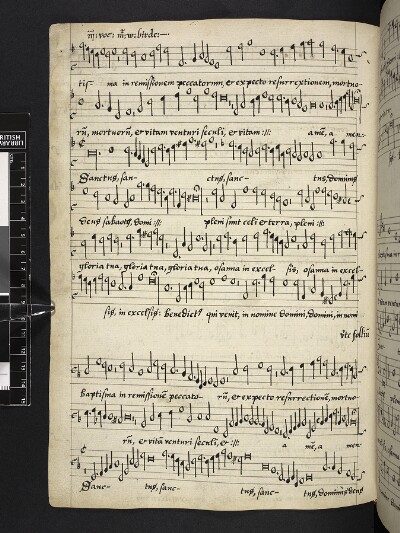 tis- ma in remissionem peccatorum, et expecto resurrextionem, mortuo-
rū, mortuorū, et vitam venturi seculi, et vitam :||: amē, a men:
Sanctus, san- ctus, sanc- tus, dominus
deus sabaoth, domi :||: pleni sunt celi et terra, pleni :||:
gloria tua, gloria tua, gloria tua, osanna in excel- sis, osanna in excel-
sis, in excelsis: benedict9 qui venit, in nomine domini, domini, in nomi
baptisma in remissionē peccato- rū, et expecto resurrectionē, mortuo-
rū, et vitā venturi seculi, et :||: a mē, a men
Sanc- tus, sanc- tus, sanc- tus, dominus deus
BRITISH
LIBRARY